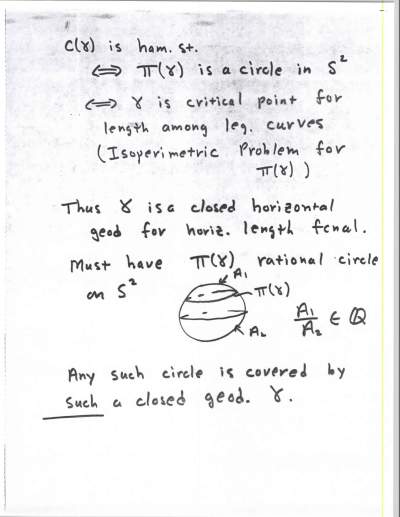 C(γ) is ham. st.
⟺ π(γ) is a circle in S²
⟺ γ is critical point for
length among leg. curves
(Isoperimetric Problem for
π(γ))
Thus γ is a closed horizontal
geod for horiz. length fcnal.
Must have π(γ) rational circle
on S²
A₁
π(γ)
A₂
A₁/A₂ ∈ ℚ
Any such circle is covered by
such a closed geod. γ.